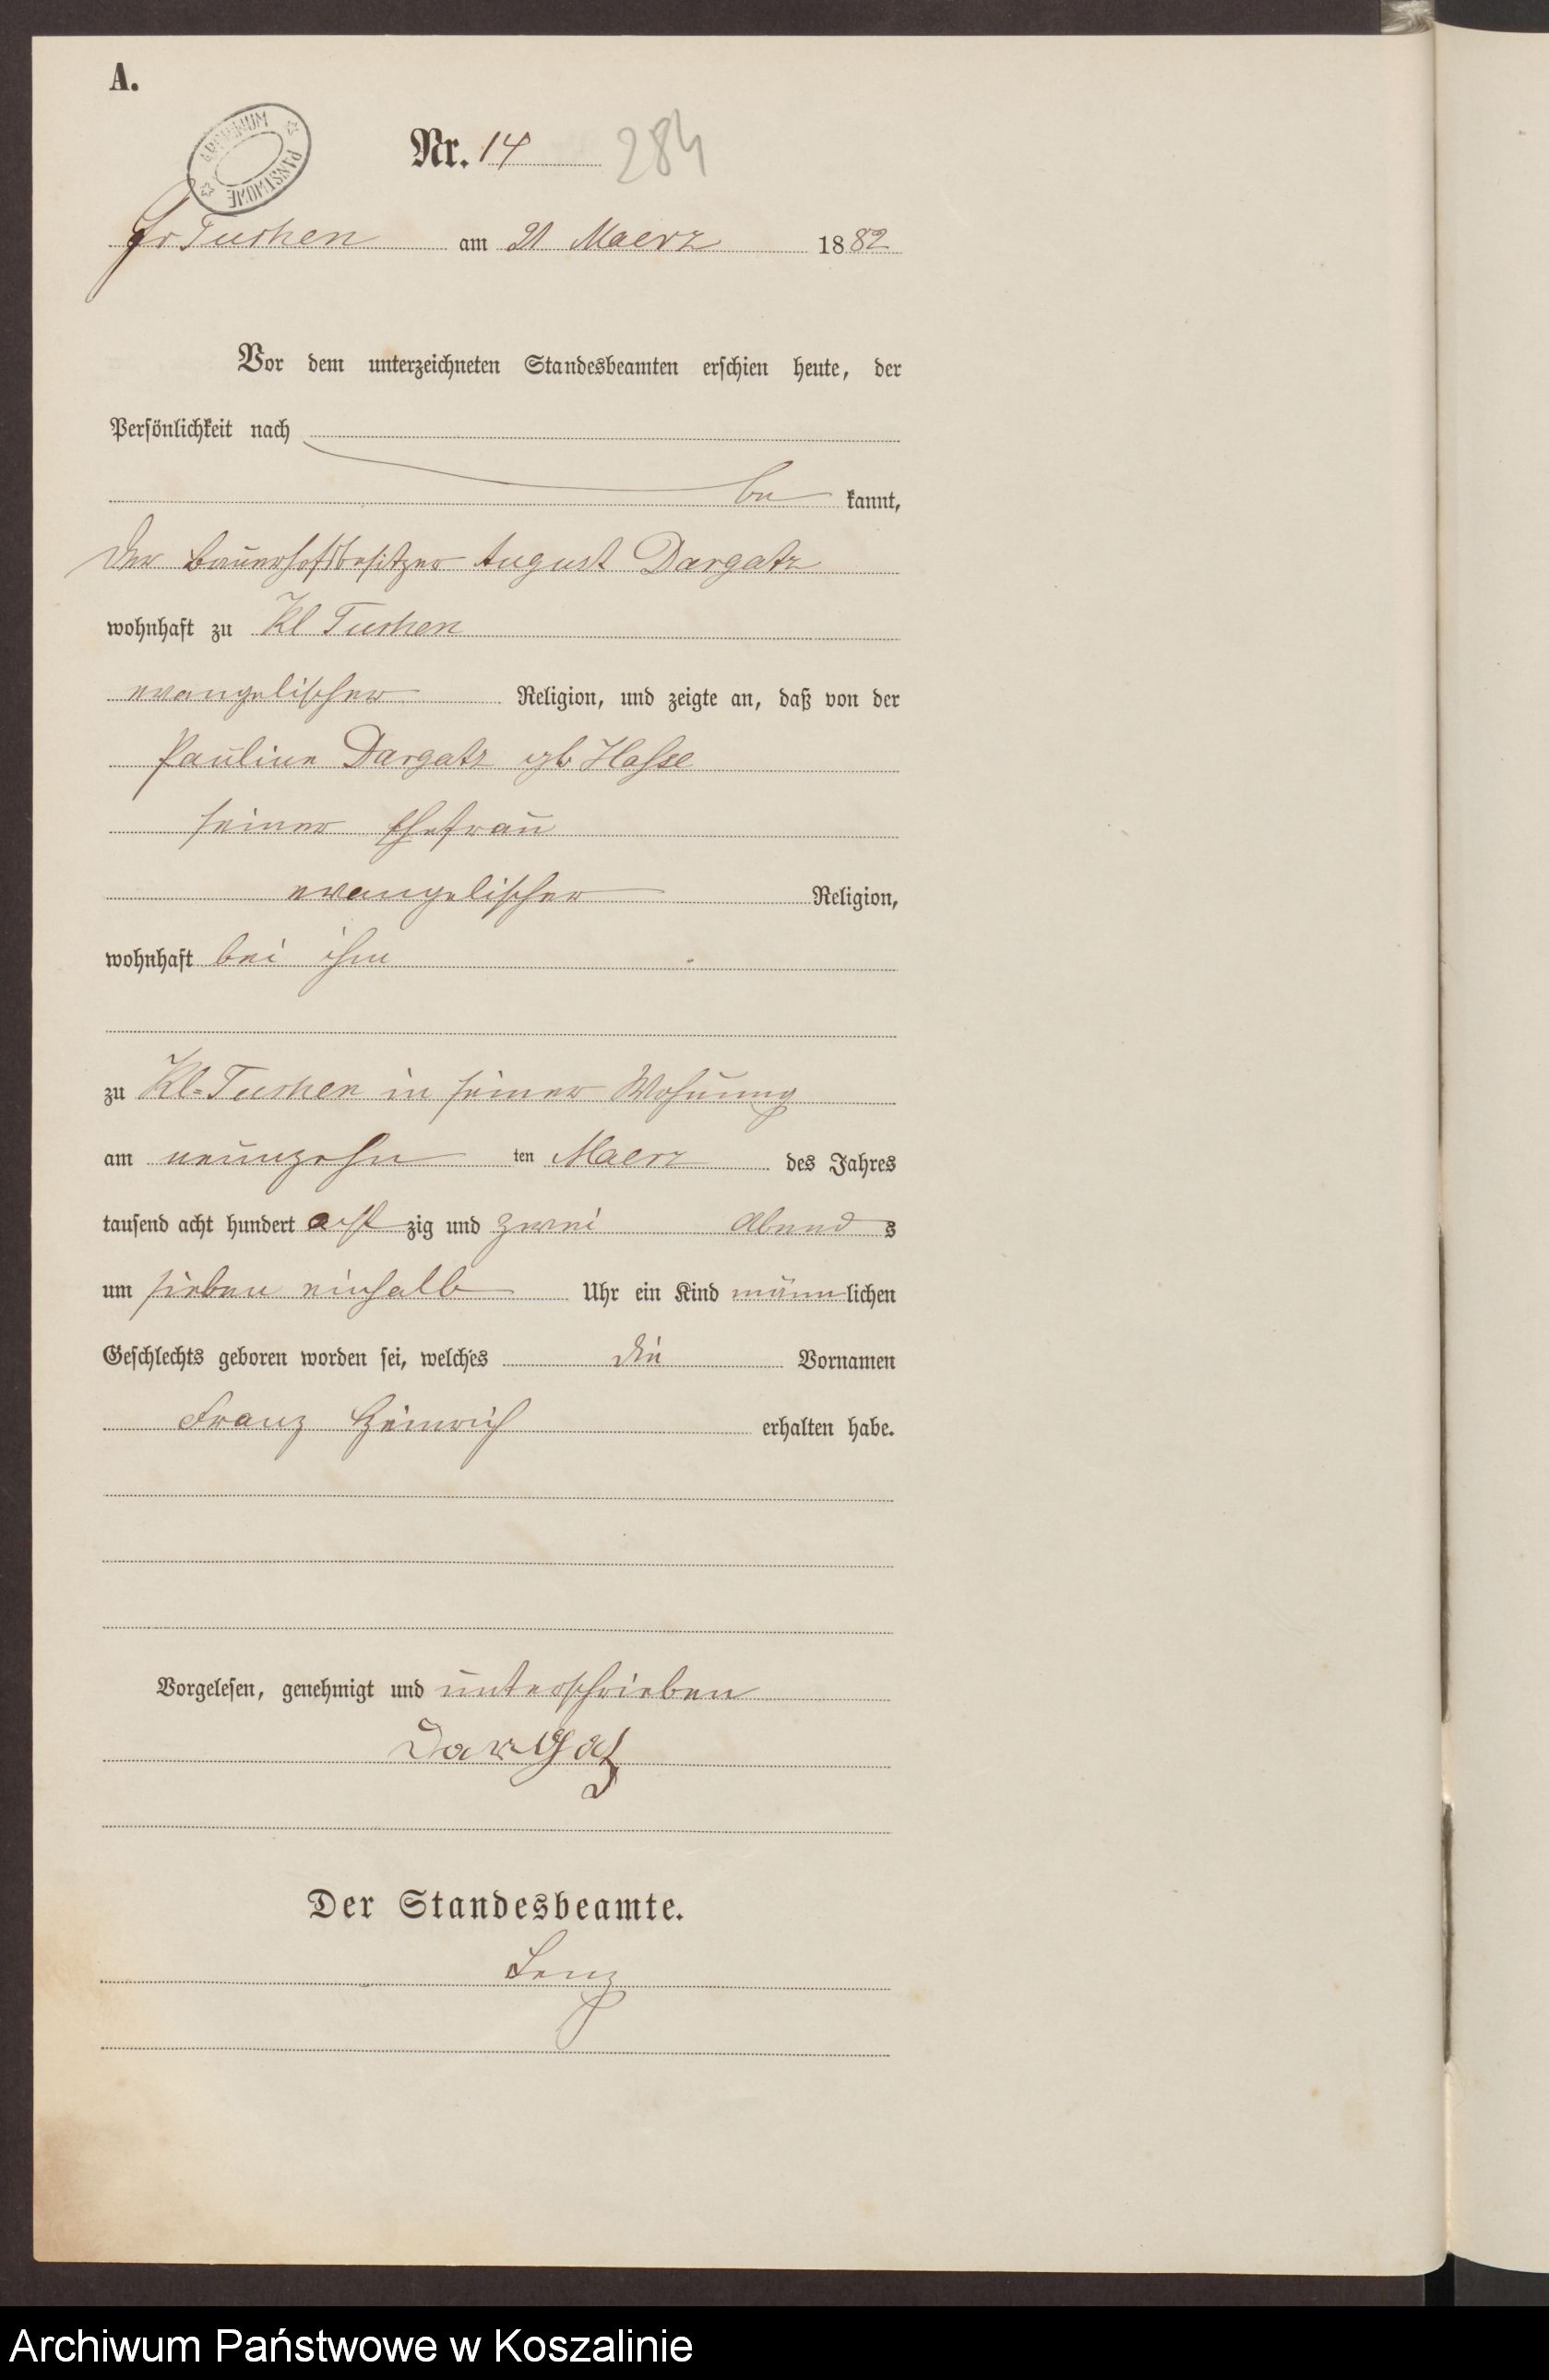 A.
ARCHIWUM PAŃSTWOWE
Nr. 14 284
Gr Tuchen am 21 Maerz 1882
Vor dem unterzeichneten Standesbeamten erschien heute, der
Persönlichkeit nach
be kannt,
der Bauerhofsbesitzer August Dargatz
wohnhaft zu Kl Tuchen
evangelischer Religion, und zeigte an, daß von der
Pauline Dargatz gb Hasse
seiner Ehefrau
evangelischer Religion,
wohnhaft bei ihm
zu Kl=Tuchen in seiner Wohnung
am neunzehn ten Maerz des Jahres
tausend acht hundert acht zig und zwei Abend s
um sieben einhalb Uhr ein Kind männ lichen
Geschlechts geboren worden sei, welches die Vornamen
Franz Heinrich erhalten habe.
Vorgelesen, genehmigt und unterschrieben
Dargatz
Der Standesbeamte.
Lenz
Archiwum Państwowe w Koszalinie